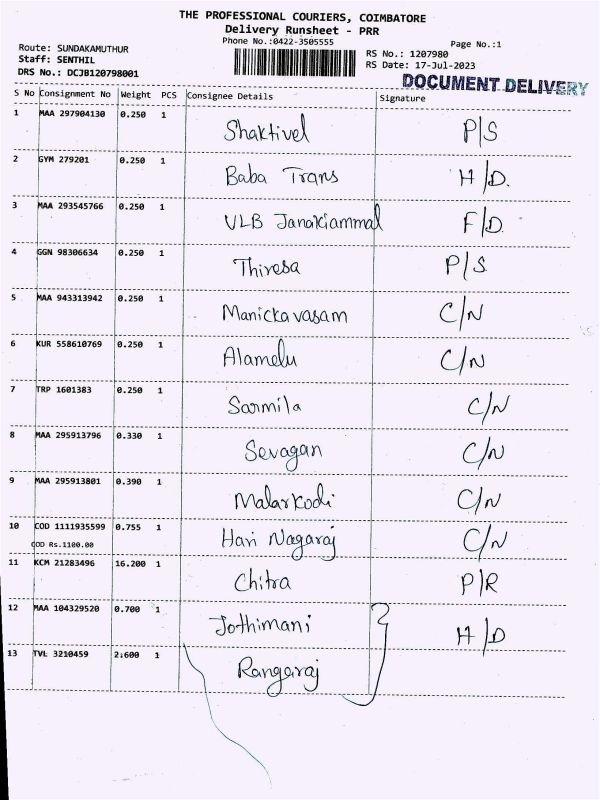 THE PROFESSIONAL COURIERS, COIMBATORE
Delivery Runsheet - PRR
Phone No.:0422-3505555
Page No.:1
Route: SUNDAKAMUTHUR
Staff: SENTHIL
DRS No.: DCJB120798001
RS No.: 1207980
RS Date: 17-Jul-2023
DOCUMENT DELIVERY
S No Consignment No Weight PCS Consignee Details Signature
1 MAA 297904130 0.250 1 Shaktivel P/S
2 GYM 279201 0.250 1 Baba Trans H/D.
3 MAA 293545766 0.250 1 VLB Janakiammal F/D.
4 GGN 98306634 0.250 1 Thiresa P/S
5 MAA 943313942 0.250 1 Manickavasam C/N
6 KUR 558610769 0.250 1 Alamelu C/N
7 TRP 1601383 0.250 1 Sarmila C/N
8 MAA 295913796 0.330 1 Sevagan C/N
9 MAA 295913801 0.390 1 Malarkodi C/N
10 COD 1111935599 0.755 1 Hari Nagaraj C/N
COD Rs.1100.00
11 KCM 21283496 16.200 1 Chitra P/R
12 MAA 104329520 0.700 1 Jothimani H/D
13 TVL 3210459 2.600 1 Rangaraj